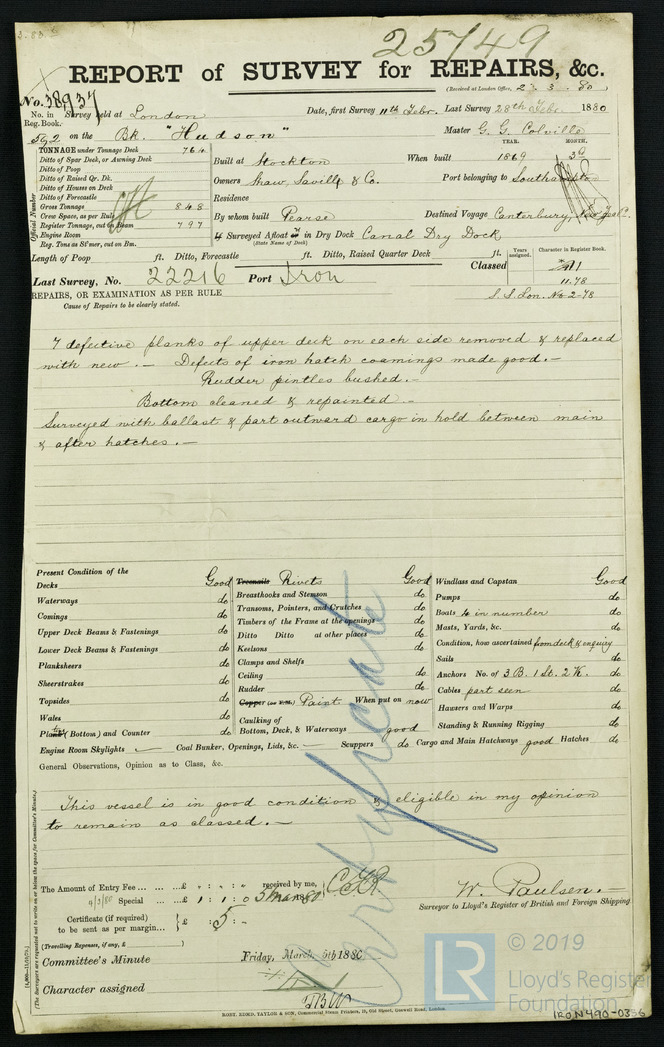 25749
REPORT of SURVEY for REPAIRS, &c.
(Received at London Office, 2 3 80)
No. 38937
No. in Reg. Book. Survey held at London Date, first Survey 11th Febr. Last Survey 28th Febr. 1880
592 on the Bk. "Hudson" Master G. G. Colville
TONNAGE under Tonnage Deck 764
Ditto of Spar Deck, or Awning Deck
Ditto of Poop
Ditto of Raised Qr. Dk.
Ditto of Houses on Deck
Ditto of Forecastle
Gross Tonnage 848
Crew Space, as per Rule
Register Tonnage, cut on Beam 797
Engine Room
Reg. Tons as St'mer, cut on Bm.
Official Number
YEAR. MONTH.
Built at Stockton When built 1869 3
Owners Shaw, Savill & Co. Port belonging to Southampton
Residence
By whom built Pearse Destined Voyage Canterbury, New Zeald.
If Surveyed Afloat or in Dry Dock Canal Dry Dock
(State Name of Dock)
Length of Poop ft. Ditto, Forecastle ft. Ditto, Raised Quarter Deck ft.
Years assigned. Character in Register Book.
Classed A1
11.78
S. S. Lon. No 2-78
Last Survey, No. 22216 Port Iron
REPAIRS, OR EXAMINATION AS PER RULE
Cause of Repairs to be clearly stated.
7 defective planks of upper deck on each side removed & replaced
with new. — Defects of iron hatch coamings made good. —
Rudder pintles bushed. —
Bottom cleaned & repainted —
Surveyed with ballast & part outward cargo in hold between main
& after hatches. —
Present Condition of the
Decks Good
Waterways do
Comings do
Upper Deck Beams & Fastenings do
Lower Deck Beams & Fastenings do
Planksheers do
Sheerstrakes do
Topsides do
Wales do
Plating (Bottom) and Counter do
Treenails Rivets Good
Breasthooks and Stemson do
Transoms, Pointers, and Crutches do
Timbers of the Frame at the openings do
Ditto Ditto at other places do
Keelsons do
Clamps and Shelfs
Ceiling do
Rudder do
Copper (or Y.M.) Paint When put on now
Caulking of
Bottom, Deck, & Waterways good
Windlass and Capstan Good
Pumps do
Boats 4 in number do
Masts, Yards, &c. do
Condition, how ascertained from deck & enquiry
Sails do
Anchors No. of 3 B. 1 St. 2 K. do
Cables part seen do
Hawsers and Warps do
Standing & Running Rigging do
Engine Room Skylights — Coal Bunker, Openings, Lids, &c. — Scuppers do Cargo and Main Hatchways good Hatches do
General Observations, Opinion as to Class, &c.
This vessel is in good condition & eligible in my opinion
to remain as classed. —
Certificate
The Amount of Entry Fee ... ... ... £ : : received by me,
4/3/80 Special ... ... £ 1 : 1 : 0 5 Mar 80
Certificate (if required) to be sent as per margin... £ : 5 : -
(Travelling Expenses, if any, £ )
W. Paulsen. —
Surveyor to Lloyd's Register of British and Foreign Shipping
Committee's Minute Friday, March 5th 1880
Character assigned
(The Surveyors are requested not to write on or below the space for Committee's Minute.)
KENT, EDMD. TAYLOR & SON, Commercial Steam Printers, 19, Old Street, Goswell Road, London.
LR
© 2019
Lloyd's Register
Foundation
IRON490-0336